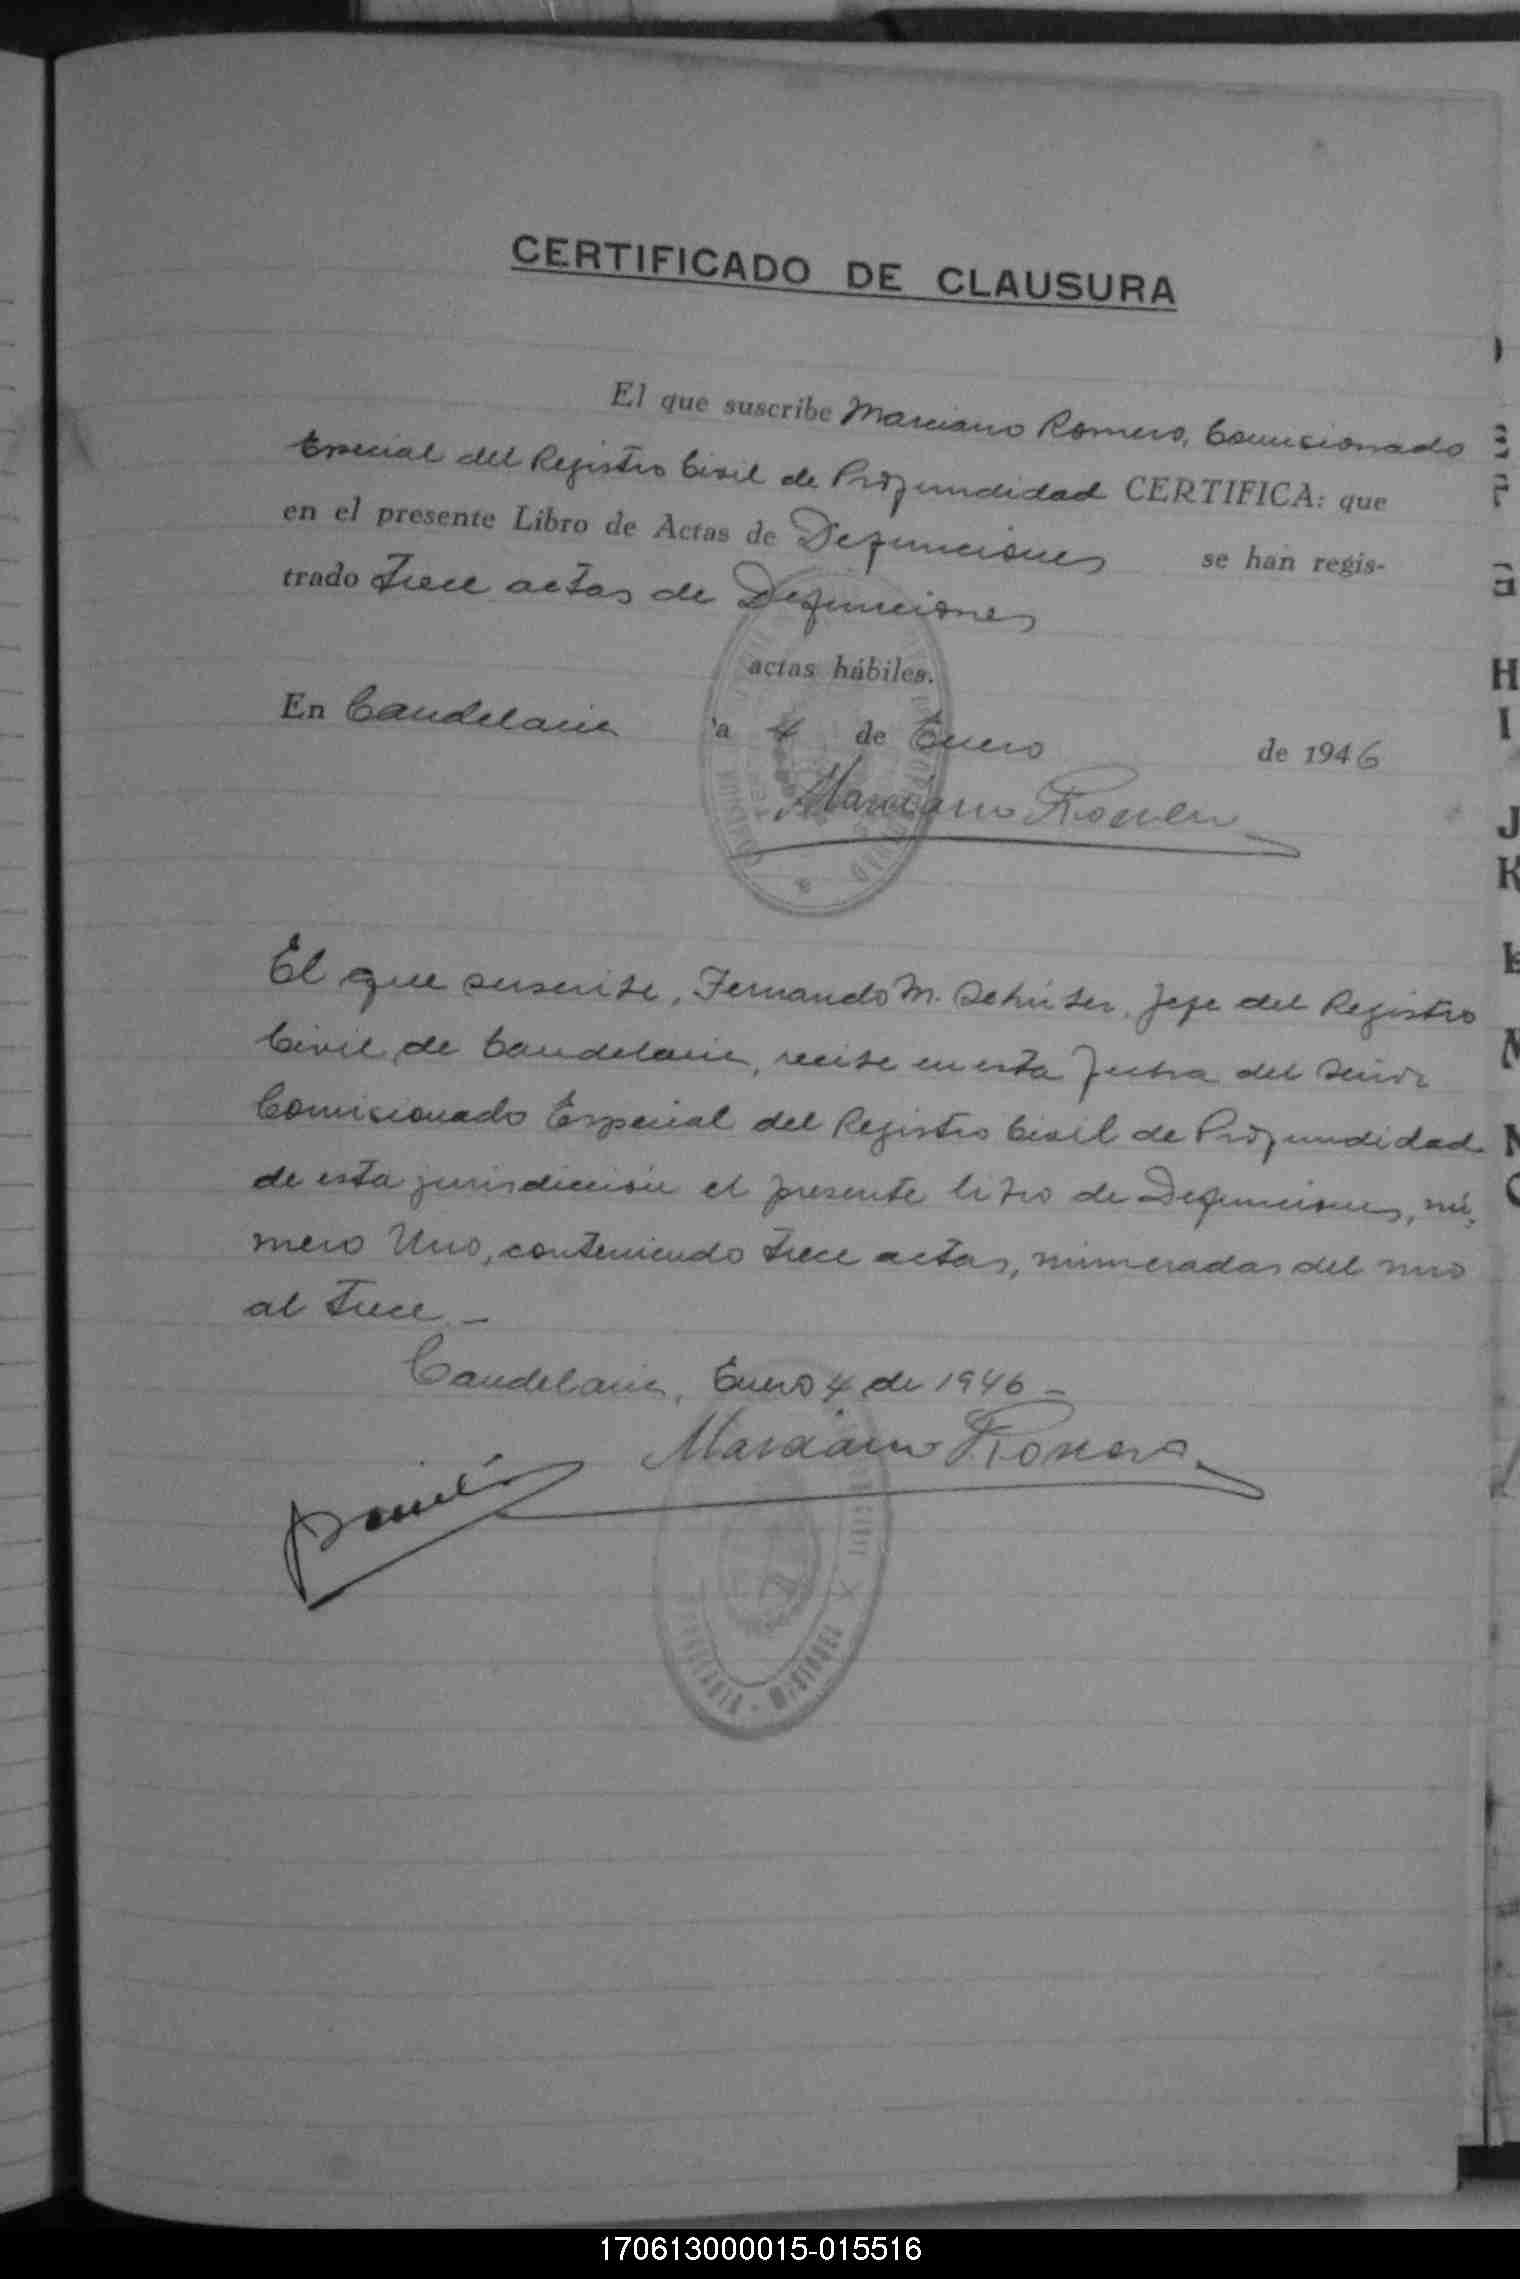 CERTIFICADO DE CLAUSURA
El que suscribe Marciano Romero, Comicionado
Especial del Registro Civil de Profundidad CERTIFICA: que
en el presente Libro de Actas de Defunciones se han regis-
trado trece actas de Defunciones
actas hábiles.
En Candelaria a 4 de Enero de 1946
Marciano Romero
El que suscribe, Fernando M. Schuster, Jefe del Registro
Civil de Candelaria, recibe en esta fecha del señor
Comicionado Especial del Registro Civil de Profundidad
de esta jurisdicción el presente libro de Defunciones, nú-
mero Uno, conteniendo trece actas, numeradas del uno
al trece.-
Candelaria, Enero 4 de 1946-
Marciano Romero
CANDELARIA - MISIONES
H
I
J
K
M
N
170613000015-015516